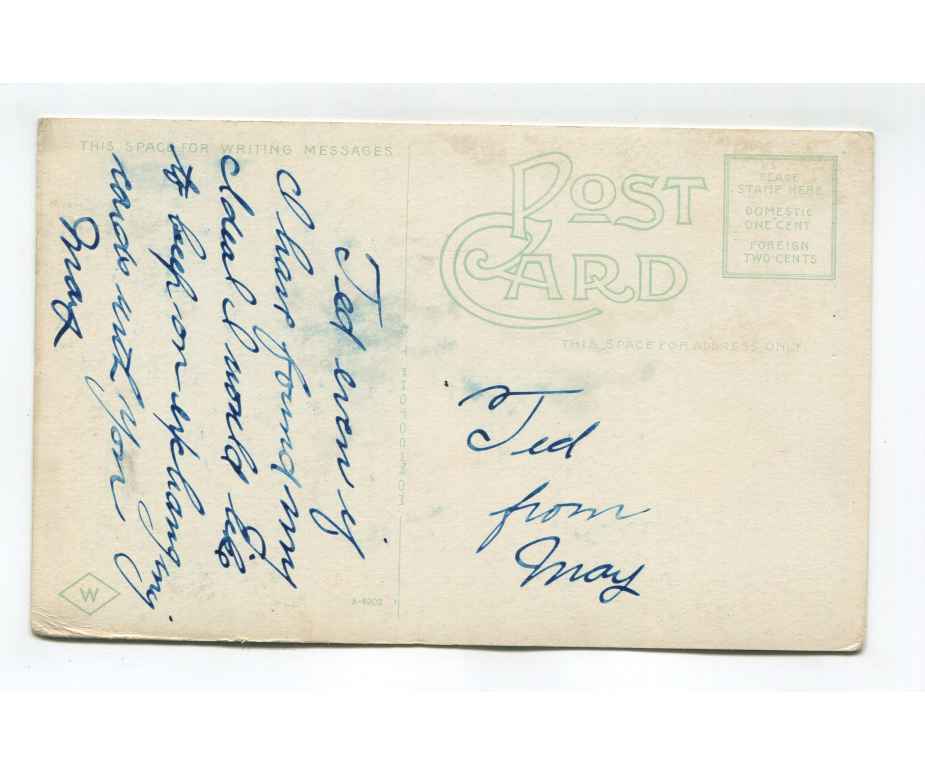 THIS SPACE FOR WRITING MESSAGES
Ted even if
I have found my
Ideal I would like
to keep on exchanging
cards with you
May
W
A-4202
POST CARD
PLACE
STAMP HERE
DOMESTIC
ONE CENT
FOREIGN
TWO CENTS
THIS SPACE FOR ADDRESS ONLY
Ted
from
May